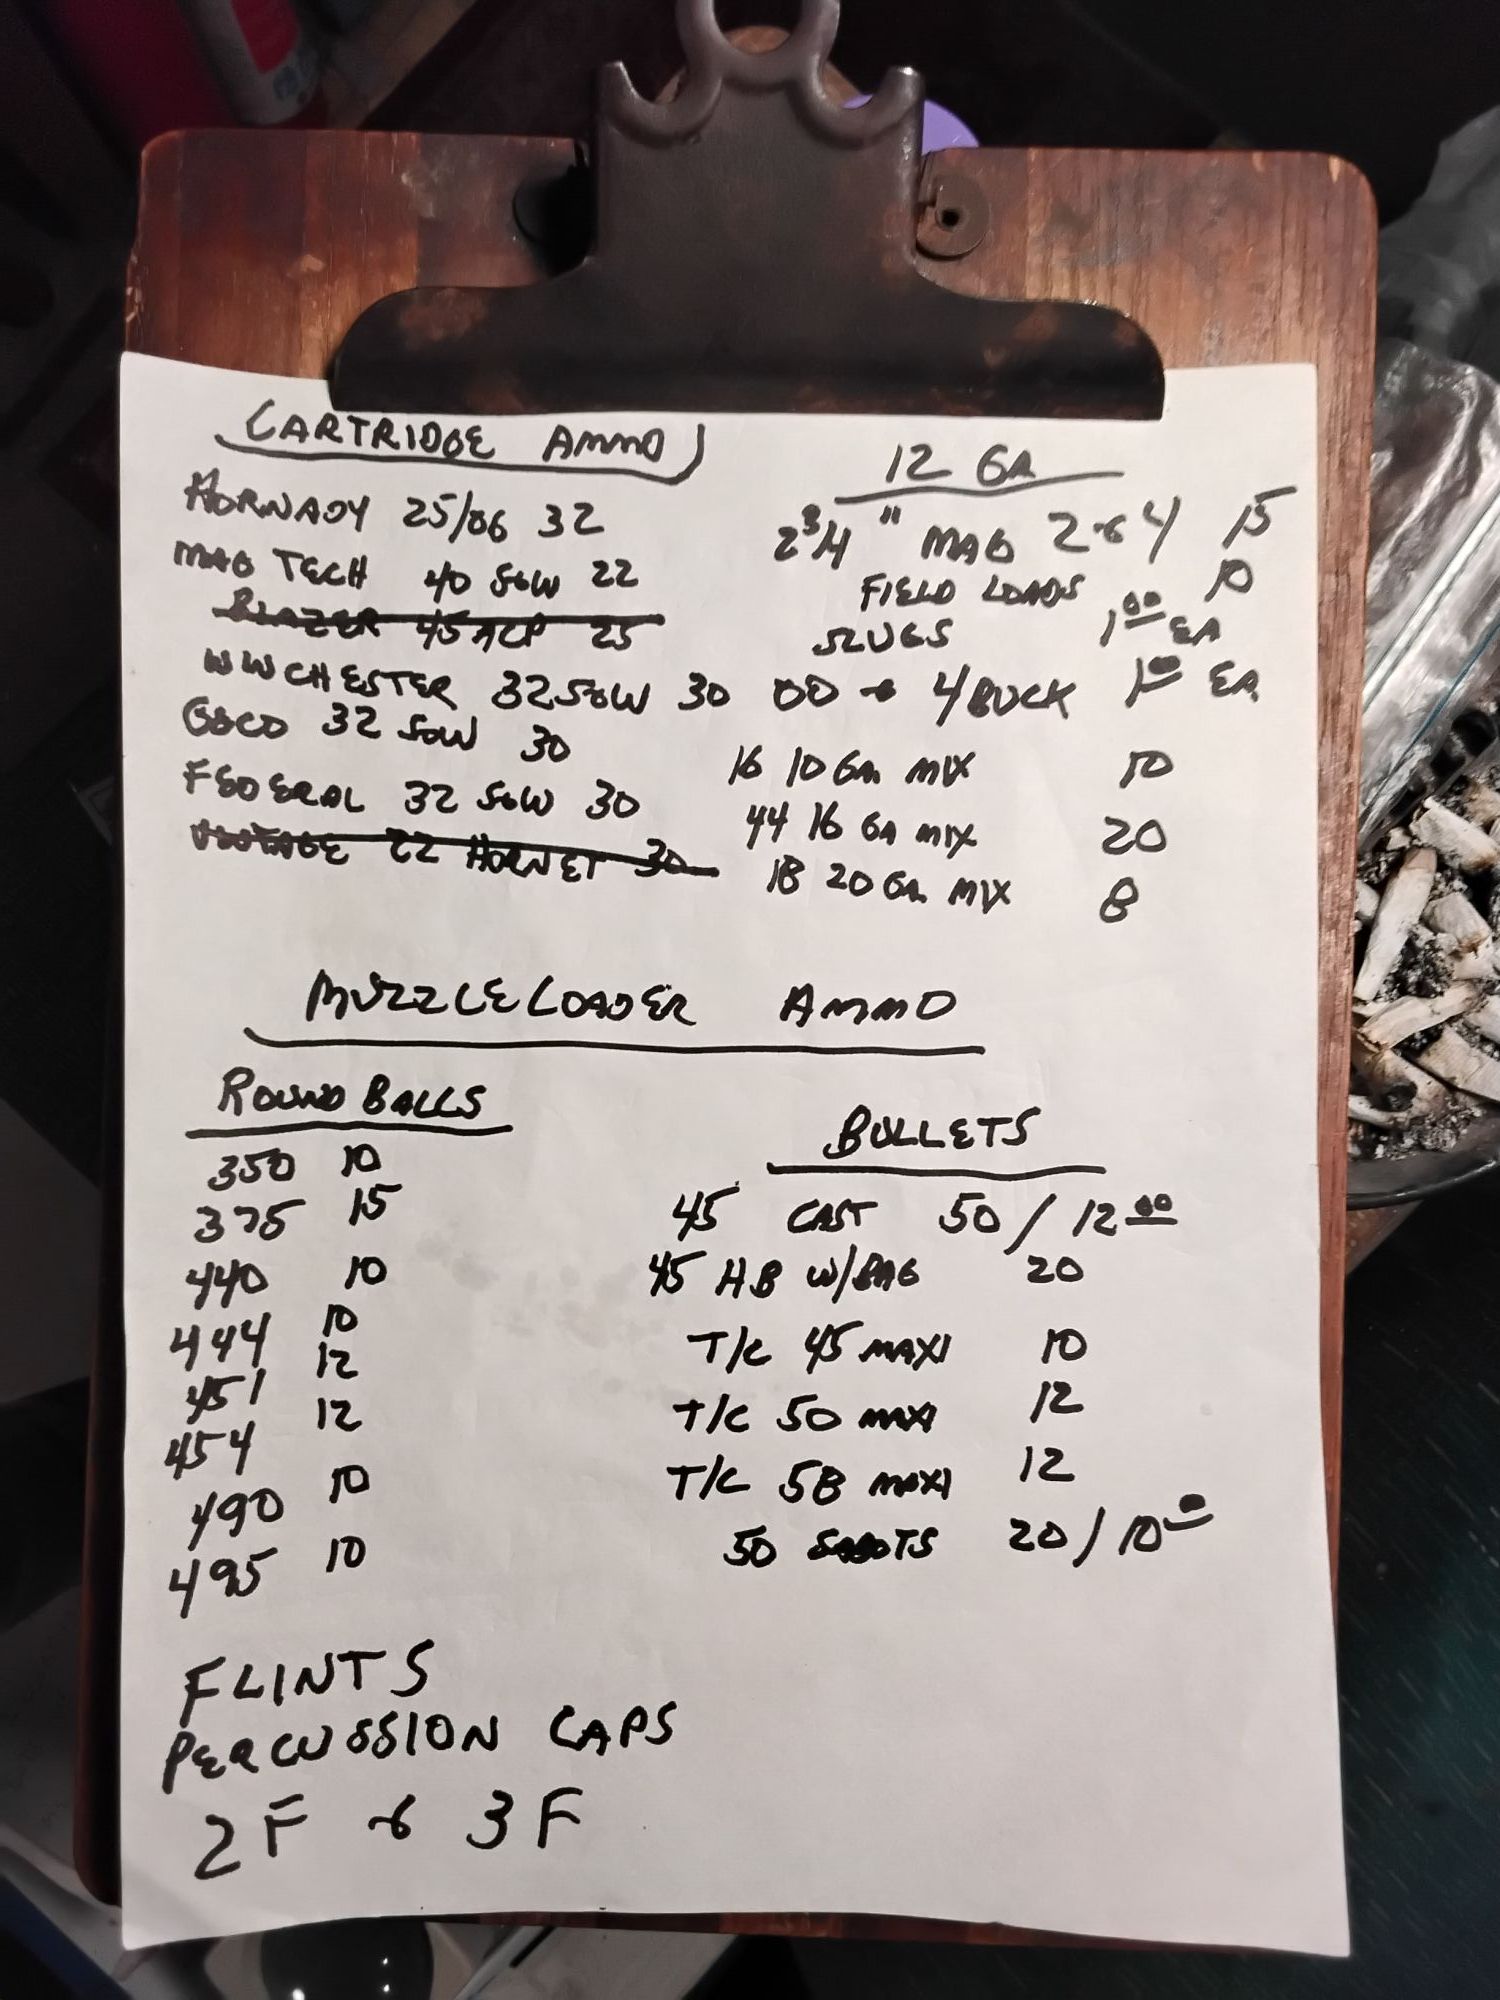 CARTRIDGE AMMO
HORNADY 25/06 32
MAG TECH 40 S&W 22
BLAZER 45 ACP 25
WINCHESTER 32 S&W 30
GECO 32 S&W 30
FEDERAL 32 S&W 30
22 HORNET 30
12 GA
2 3/4" MAG 2 & 4 15
FIELD LOADS 10
SLUGS 1 00 EA
00 & 4 BUCK 1 00 EA
16 10 GA. MIX 10
44 16 GA MIX 20
18 20 GA. MIX 8
MUZZLELOADER AMMO
ROUND BALLS
350 10
375 15
440 10
444 10
451 12
454 12
490 10
495 10
BULLETS
45 CAST 50 / 12 00
45 HB W/BAG 20
T/C 45 MAXI 10
T/C 50 MAXI 12
T/C 58 MAXI 12
50 SABOTS 20 / 10 00
FLINTS
PERCUSSION CAPS
2F & 3F